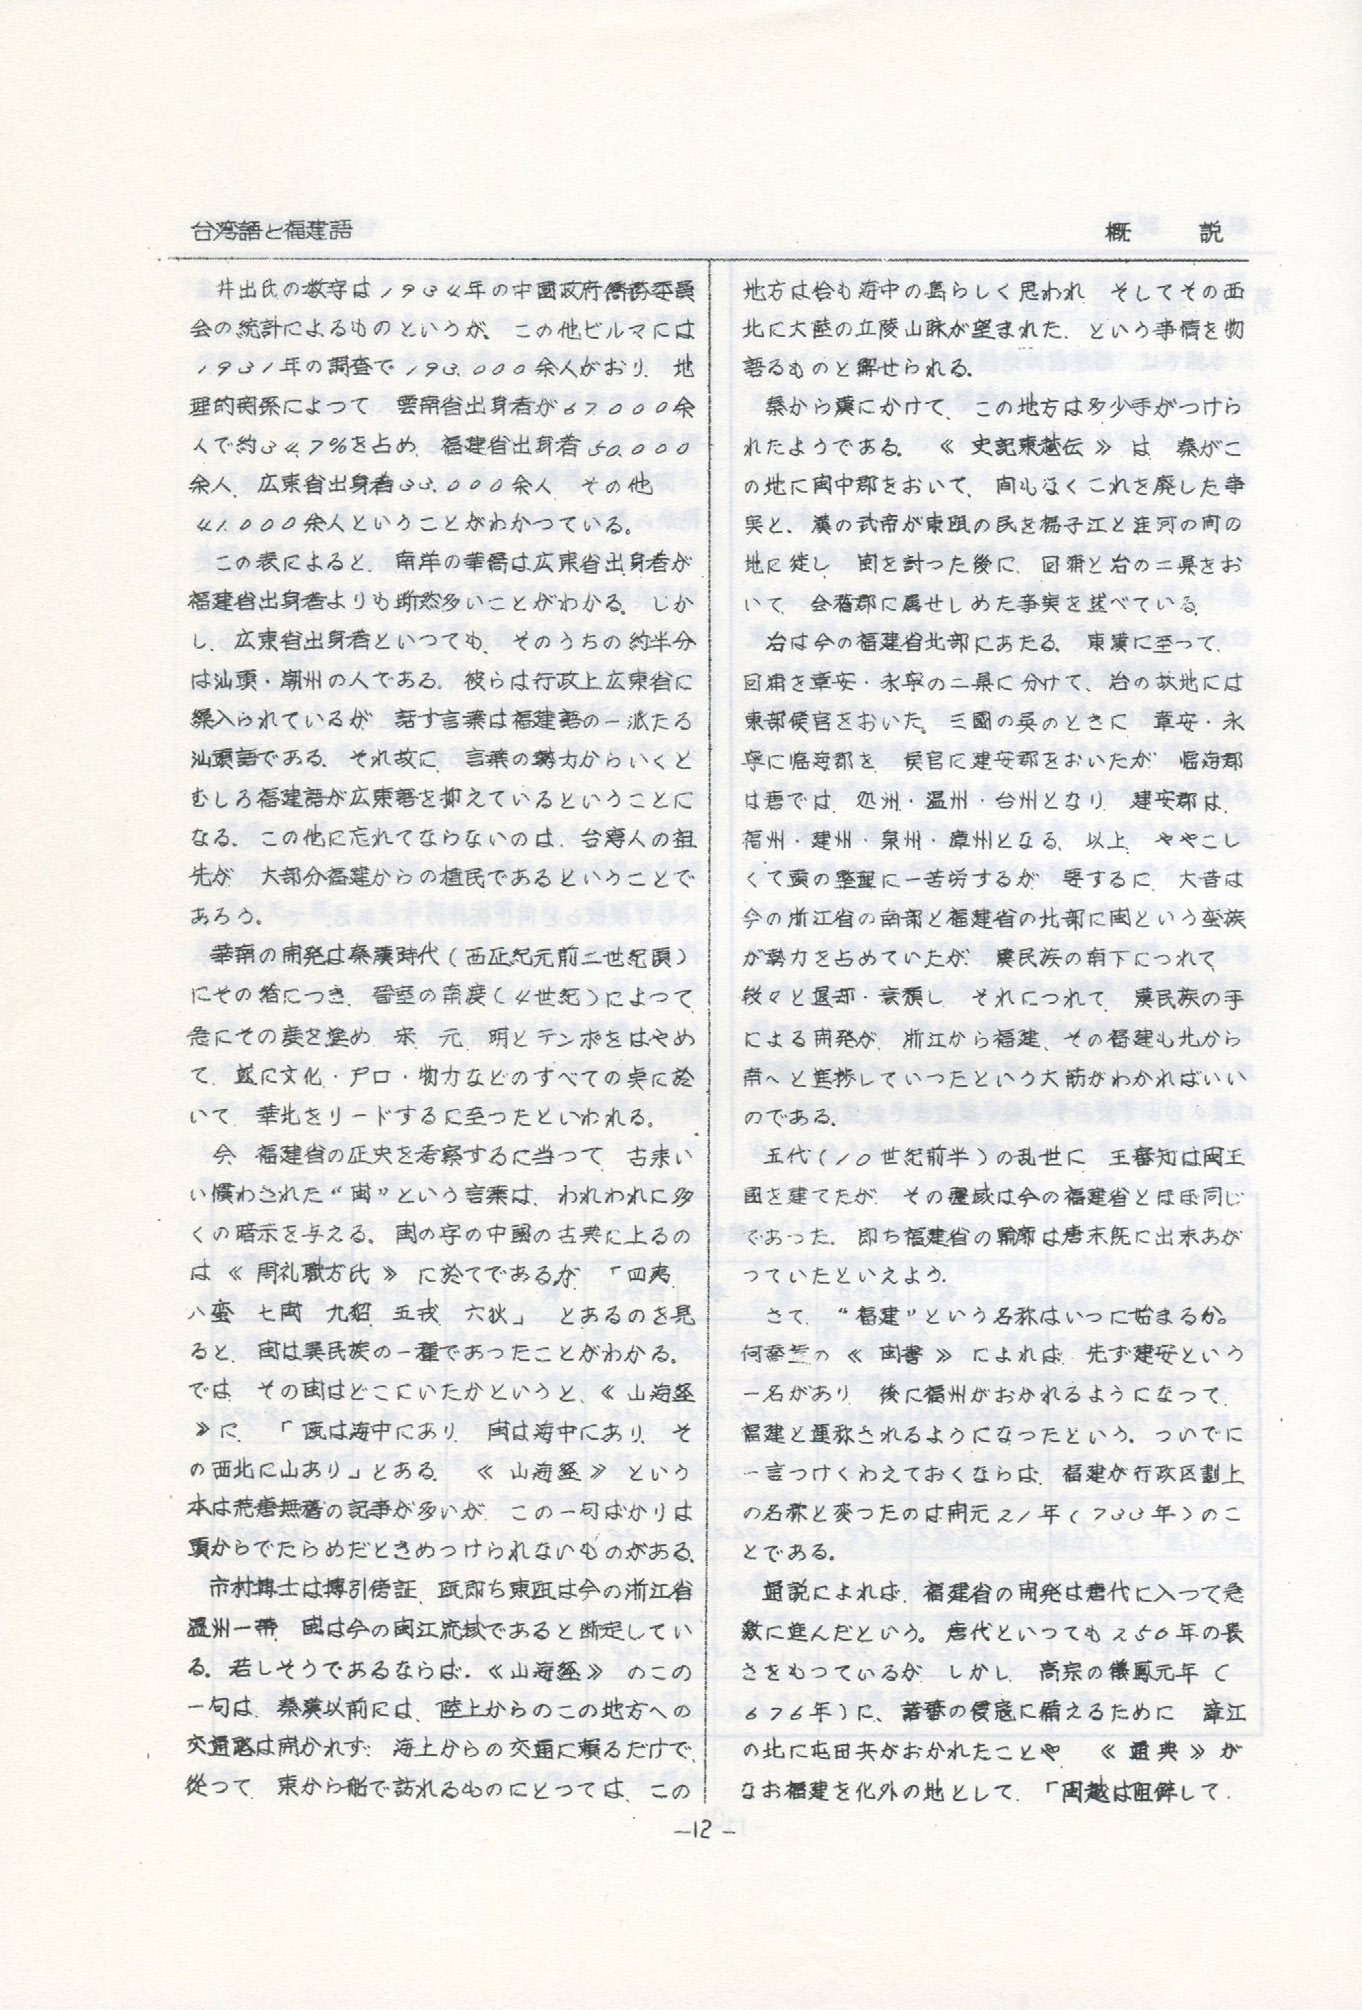 台湾語と福建語
概 説
井出氏の数字は1934年の中國政府僑務委員
会の統計によるものというが、この他ビルマには
1931年の調査で193,000余人がおり、地
理的関係によって、雲南省出身者が67,000余
人で約34.7%を占め、福建省出身者50,000
余人、広東省出身者33,000余人、その他
41,000余人ということがわかつている。
この表によると、南洋の華僑は広東省出身者が
福建省出身者よりも断然多いことがわかる。しか
し、広東省出身者といつても、そのうちの約半分
は汕頭・潮州の人である。彼らは行政上広東省に
繰入られているが、話す言葉は福建語の一派たる
汕頭語である。それ故に、言葉の勢力からいくと
むしろ福建語が広東語を抑えているということに
なる。この他に忘れてならないのは、台湾人の祖
先が、大部分福建からの植民であるということで
あろう。
華南の開発は秦漢時代(西正紀元前二世紀頃)
にその緒につき、晋室の南渡(4世紀)によって
急にその度を進め、宋、元、明とテンポをはやめ
て、遂に文化・戸口・物力などのすべての点に於
いて、華北をリードするに至ったといわれる。
今、福建省の正史を考察するに当って、古来い
い慣わされた“閩”という言葉は、われわれに多
くの暗示を与える。閩の字の中國の古典に上るの
は《周礼職方氏》に於てであるが、「四夷、
八蛮、七閩、九貊、五戎、六狄」とあるのを見
ると、閩は異民族の一種であったことがわかる。
では、その閩はどこにいたかというと、《山海経
》に、「甌は海中にあり、閩は海中にあり、そ
の西北に山あり」とある。《山海経》という
本は荒唐無稽の記事が多いが、この一句ばかりは
頭からでたらめだときめつけられないものがある。
市村博士は博引傍証、甌即ち東甌は今の浙江省
温州一帯、閩は今の閩江流域であると断定してい
る。若しそうであるならば、《山海経》のこの
一句は、秦漢以前には、陸上からのこの地方への
交通路は開かれず、海上からの交通に頼るだけで、
從つて、東から船で訪れるものにとつては、この
地方は恰も海中の島らしく思われ、そしてその西
北に大陸の立陵山脉が望まれた、という事情を物
語るものと解せられる。
秦から漢にかけて、この地方は多少手がつけら
れたようである。《史記東越伝》は、秦がこ
の地に閩中郡をおいて、間もなくこれを廃した事
実と、漢の武帝が東甌の民を揚子江と淮河の間の
地に徙し、閩を討った後に、回浦と冶の二県をお
いて、会稽郡に属せしめた事実を述べている。
冶は今の福建省北部にあたる。東漢に至って、
回浦を章安・永寧の二県に分けて、冶の故地には
東部侯官をおいた。三國の呉のときに、章安・永
寧に臨海郡を、侯官に建安郡をおいたが、臨海郡
は唐では、処洲・温州・台州となり、建安郡は、
福州・建州・泉州・漳州となる。以上、ややこし
くて頭の整理に一苦労するが、要するに、大昔は
今の浙江省の南部と福建省の北部に閩という蛮族
が勢力を占めていたが、漢民族の南下につれて、
段々と退却・衰頽し、それにつれて、漢民族の手
による開発が、浙江から福建、その福建も北から
南へと進捗していつたという大筋がわかればいい
のである。
五代(10世紀前半)の乱世に、王審知は閩王
國を建てたが、その疆域は今の福建省とほぼ同じ
であった。即ち福建省の輪郭は唐末既に出来あが
つていたといえよう。
さて、“福建”という名称はいつに始まるか。
何喬の《閩書》によれば、先ず建安という
一名があり、後に福州がおかれるようになつて、
福建と連称されるようになつたという。ついでに
一言つけくわえておくならば、福建が行政区劃上
の名称と変つたのは開元21年(733年)のこ
とである。
通説によれば、福建省の開発は唐代に入つて急
激に進んだという。唐代といつても250年の長
さをもつているが、しかし、高宗の儀鳳元年(
676年)に、諸蕃の侵寇に備えるために、漳江
の北に屯田兵がおかれたことや、《通典》が
なお福建を化外の地として、「閩越は阻僻して、
—12—